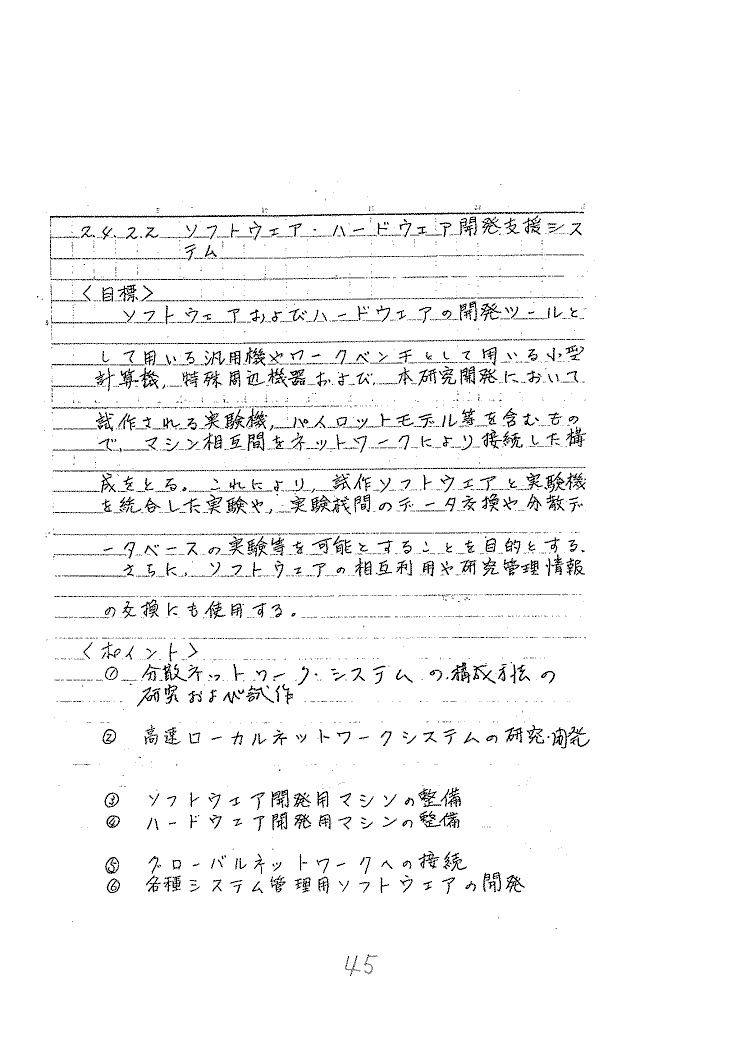 2.4.2.2 ソフトウェア・ハードウェア開発支援シス
テム
<目標>
ソフトウェアおよびハードウェアの開発ツールと
して用いる汎用機やワークベンチとして用いる小型
計算機,特殊周辺機器および,本研究開発において
試作される実験機,パイロットモデル等を含むもの
で,マシン相互間をネットワークにより接続した構
成をとる。これにより,試作ソフトウェアと実験機
を統合した実験や,実験機間のデータ交換や分散デ
ータベースの実験等を可能とすることを目的とする.
さらに,ソフトウェアの相互利用や研究管理情報
の交換にも使用する。
<ポイント>
① 分散ネットワーク・システムの構成方法の
研究および試作
② 高速ローカルネットワークシステムの研究・開発
③ ソフトウェア開発用マシンの整備
④ ハードウェア開発用マシンの整備
⑤ グローバルネットワークへの接続
⑥ 各種システム管理用ソフトウェアの開発
45